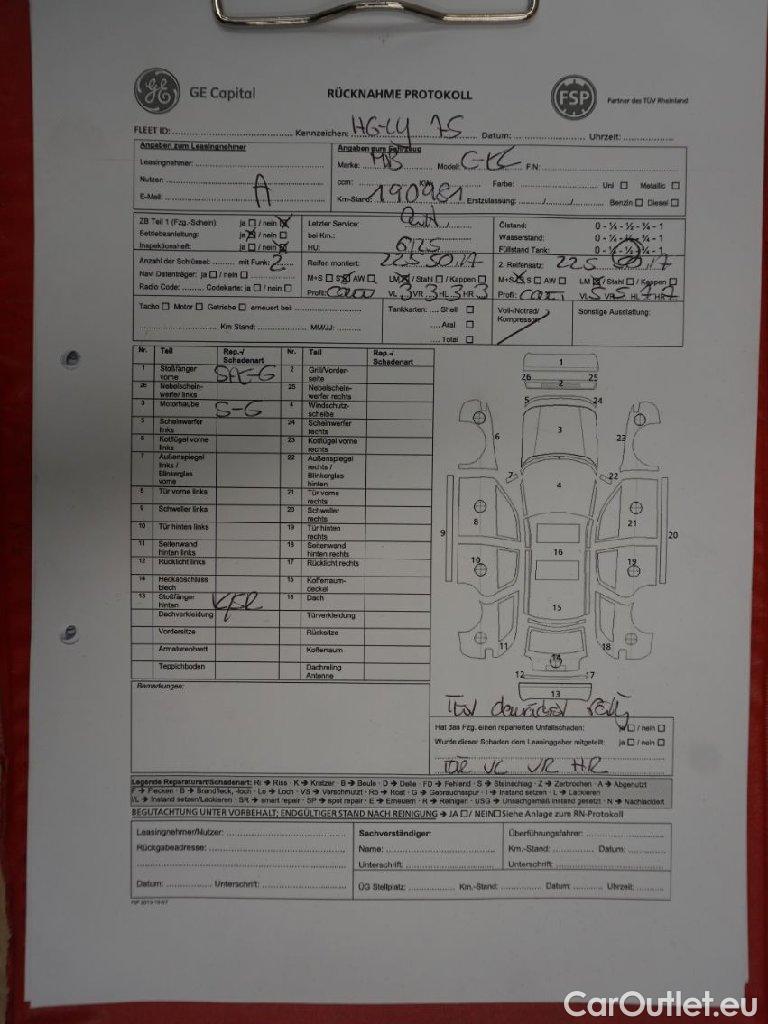 GE Capital
RÜCKNAHME PROTOKOLL
FSP
Partner des TÜV Rheinland
FLEET ID: Kennzeichen: Datum: Uhrzeit:
Angaben zum Leasingnehmer
Angaben zum Fahrzeug
Leasingnehmer:
Marke: MB Model: FN:
Nutzer: A
ccm: KW: Farbe: Uni Metallic
E-Mail:
Km-Stand: 190981 Erstzulassung: Benzin Diesel
ZB Teil 1 (Fzg.-Schein) ja / nein
Letzter Service:
Ölstand: 0 - ¼ - ½ - ¾ - 1
Betriebsanleitung: ja / nein
bei Km.:
Wasserstand: 0 - ¼ - ½ - ¾ - 1
Inspektionsheft: ja / nein
HU: 6/25
Füllstand Tank: 0 - ¼ - ½ - ¾ - 1
Anzahl der Schlüssel: mit Funk: 2
Reifen montiert: 225 50 17
2. Reifensatz: 225 50 17
Navi Datenträger: ja / nein
M+S S AW LM / Stahl / Kappen
M+S S AW LM / Stahl / Kappen
Radio Code: Codekarte: ja / nein
Profil: VL 3 VR 3 HL 3 HR 3
Profil: VL 5 VR 5 HL 7 HR 7
Tacho Motor Getriebe erneuert bei
Tankkarten: Shell
Voll-/Notrad/
Kompressor:
Sonstige Ausstattung:
Km Stand: MM/JJ:
Aral
Total
Nr. Teil Rep.-/ Schadenart Nr. Teil Rep.-/ Schadenart
1 Stoßfänger vorne 2 Grill/Vorder-seite
26 Nebelschein-werfer links 25 Nebelschein-werfer rechts
3 Motorhaube S-G 4 Windschutz-scheibe
5 Scheinwerfer links 24 Scheinwerfer rechts
6 Kotflügel vorne links 23 Kotflügel vorne rechts
7 Außenspiegel links / Blinkerglas vorne 22 Außenspiegel rechts / Blinkerglas hinten
8 Tür vorne links 21 Tür vorne rechts
9 Schweller links 20 Schweller rechts
10 Tür hinten links 19 Tür hinten rechts
11 Seitenwand hinten links 18 Seitenwand hinten rechts
12 Rücklicht links 17 Rücklicht rechts
14 Heckabschluss blech 15 Kofferraum-deckel
13 Stoßfänger hinten 16 Dach
Dachverkleidung Türverkleidung
Vordersitze Rücksitze
Armaturenbrett Kofferraum
Teppichboden Dachreling Antenne
1
26 25
2
5 24
3
6 23
7 22
4
8 21
9 20
16
10 19
15
11 18
14
12 17
13
Bemerkungen:
Hat das Fzg. einen reparierten Unfallschaden: ja / nein
Wurde dieser Schaden dem Leasinggeber mitgeteilt: ja / nein
Legende Reparaturart/Schadenart: Ri → Riss · K → Kratzer · B → Beule · D → Delle · FD → Fehlend · S → Steinschlag · Z → Zerbrochen · A → Abgenutzt
BEGUTACHTUNG UNTER VORBEHALT; ENDGÜLTIGER STAND NACH REINIGUNG → JA / NEIN Siehe Anlage zum RN-Protokoll
Leasingnehmer/Nutzer:
Sachverständiger
Überführungsfahrer:
Rückgabeadresse:
Name:
Km.-Stand: Datum:
Unterschrift:
Unterschrift:
Datum: Unterschrift:
ÜG Stellplatz: Km.-Stand: Datum: Uhrzeit:
CarOutlet.eu